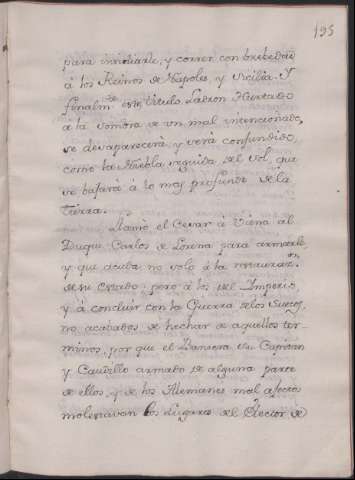 195
para invadiarle, y correr con brebedad
à los Reinos de Napoles, y Sicilia. Y
finalmte. este titulo Ladron Hurtado
a la sombra de un mal intencionado,
se desaparecerà, y verà confundido,
como la Niebla seguida del Sol, que
se bajarà à lo mas profundo de la
tierra.
Llamò el Cesar à Viena al
Duque Carlos de Lorena para armarle,
y que acuda no solo à la restauraz.on
de su estado; pero à los del Imperio,
y à concluir con la Guerra de los Suecos,
no acabados de hechar de aquellos ter-
minos, por que el Danera su Capitan
y Caudillo armado de alguna parte
de ellos, y de los Alemanes mal afectos
molestavan los lugares del Elector de